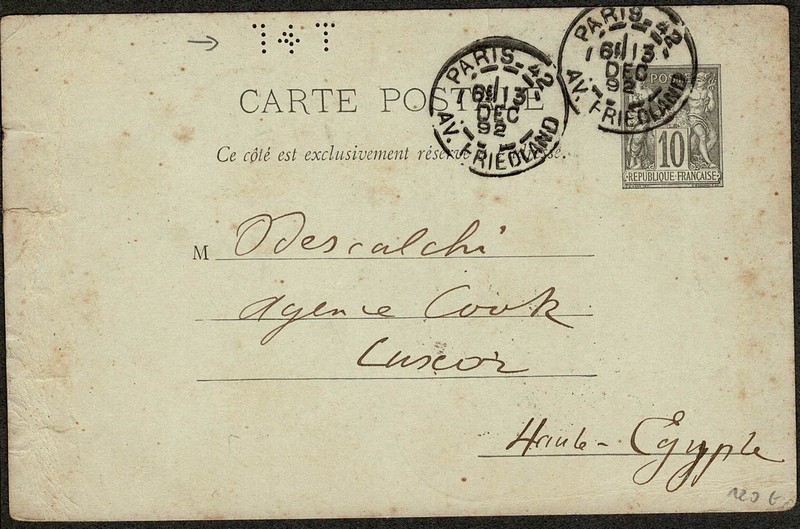 CARTE POSTALE
PARIS 42
6E 13
DEC
92
AV. FRIEDLAND
PARIS 42
6E 13
DEC
92
AV. FRIEDLAND
POSTE
10
REPUBLIQUE FRANÇAISE
Ce côté est exclusivement réservé à l'adresse.
M Descalchi
Agence Cook
Luxor
Haute-Egypte
120 €